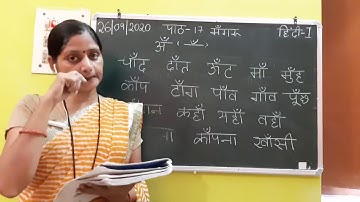 26/09/2020 पाठ-17 मँगरू हिंदी-I
अँ - ( ँ )
चाँद दाँत ऊँट माँ मुँह
काँप टाँग पाँव गाँव पूँछ
कहाँ यहाँ वहाँ
काँपना खाँसी